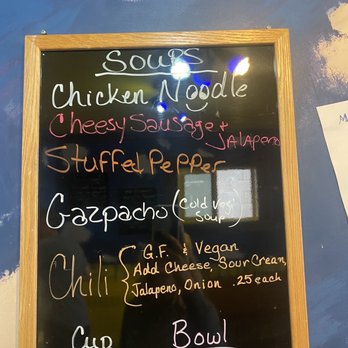 Soups
Chicken Noodle
Cheesy Sausage +
Jalapeno
Stuffed Pepper
Gazpacho (Cold Veg
Soup)
Chili { G.F. & Vegan
Add Cheese, Sour Cream,
Jalapeno, Onion .25 each
Cup Bowl
M